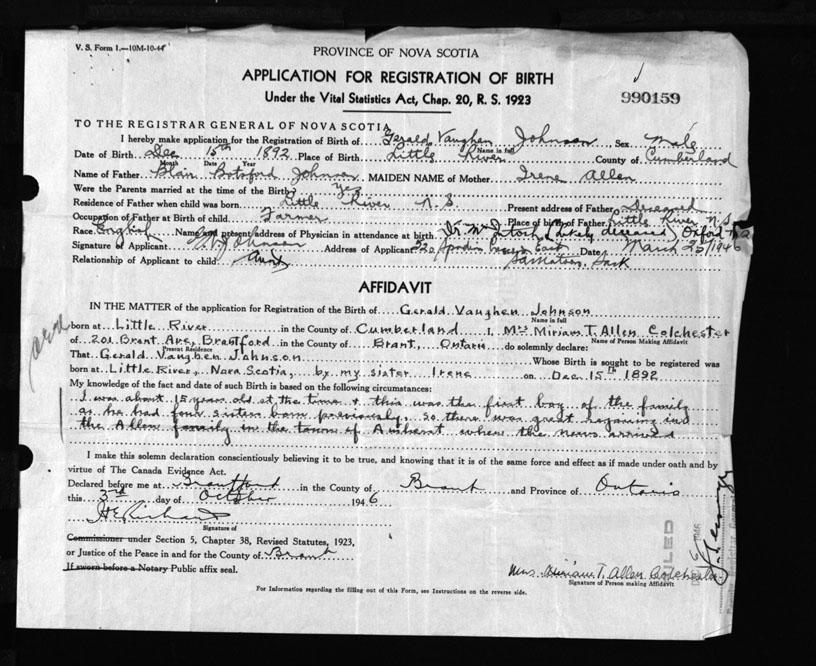 V. S. Form 1.—10M-10-44
PROVINCE OF NOVA SCOTIA
APPLICATION FOR REGISTRATION OF BIRTH
Under the Vital Statistics Act, Chap. 20, R. S. 1923
990159
TO THE REGISTRAR GENERAL OF NOVA SCOTIA
I hereby make application for the Registration of Birth of Gerald Vaughen Johnson Sex Male
Name in full
Date of Birth Dec 15th 1892 Place of Birth Little River County of Cumberland
Month Date Year
Name of Father Blair Botsford Johnson MAIDEN NAME of Mother Irene Allen
Were the Parents married at the time of the Birth? Yes
Residence of Father when child was born Little River N. S. Present address of Father Deceased
Occupation of Father at Birth of child Farmer Place of birth of Father Little River N. S.
Race English Name and present address of Physician in attendance at birth Dr. McIntosh Oxford
Signature of Applicant Johnson Address of Applicant East Date March 1946
Relationship of Applicant to child Saskatoon, Sask
AFFIDAVIT
IN THE MATTER of the application for Registration of the Birth of Gerald Vaughen Johnson
Name in full
born at Little River in the County of Cumberland I, Mrs Miriam T. Allen Colchester
Name of Person Making Affidavit
of 201 Brant Ave, Brantford in the County of Brant, Ontario do solemnly declare:
Present Residence
That Gerald Vaughen Johnson Whose Birth is sought to be registered was
born at Little River, Nova Scotia, by my sister Irene on Dec. 15th 1892
My knowledge of the fact and date of such Birth is based on the following circumstances:
I was about 15 years old at the time & this was the first boy of the family
as he had four sisters born previously, so there was great in
the Allen family in the town of Amherst when the news arrived
I make this solemn declaration conscientiously believing it to be true, and knowing that it is of the same force and effect as if made under oath and by
virtue of The Canada Evidence Act.
Declared before me at Brantford in the County of Brant and Province of Ontario
this 3rd day of October 1946
Signature of
Commissioner under Section 5, Chapter 38, Revised Statutes, 1923,
or Justice of the Peace in and for the County of Brant
If sworn before a Notary Public affix seal.
Mrs. Miriam T. Allen Colchester
Signature of Person making Affidavit
For Information regarding the filling out of this Form, see Instructions on the reverse side.